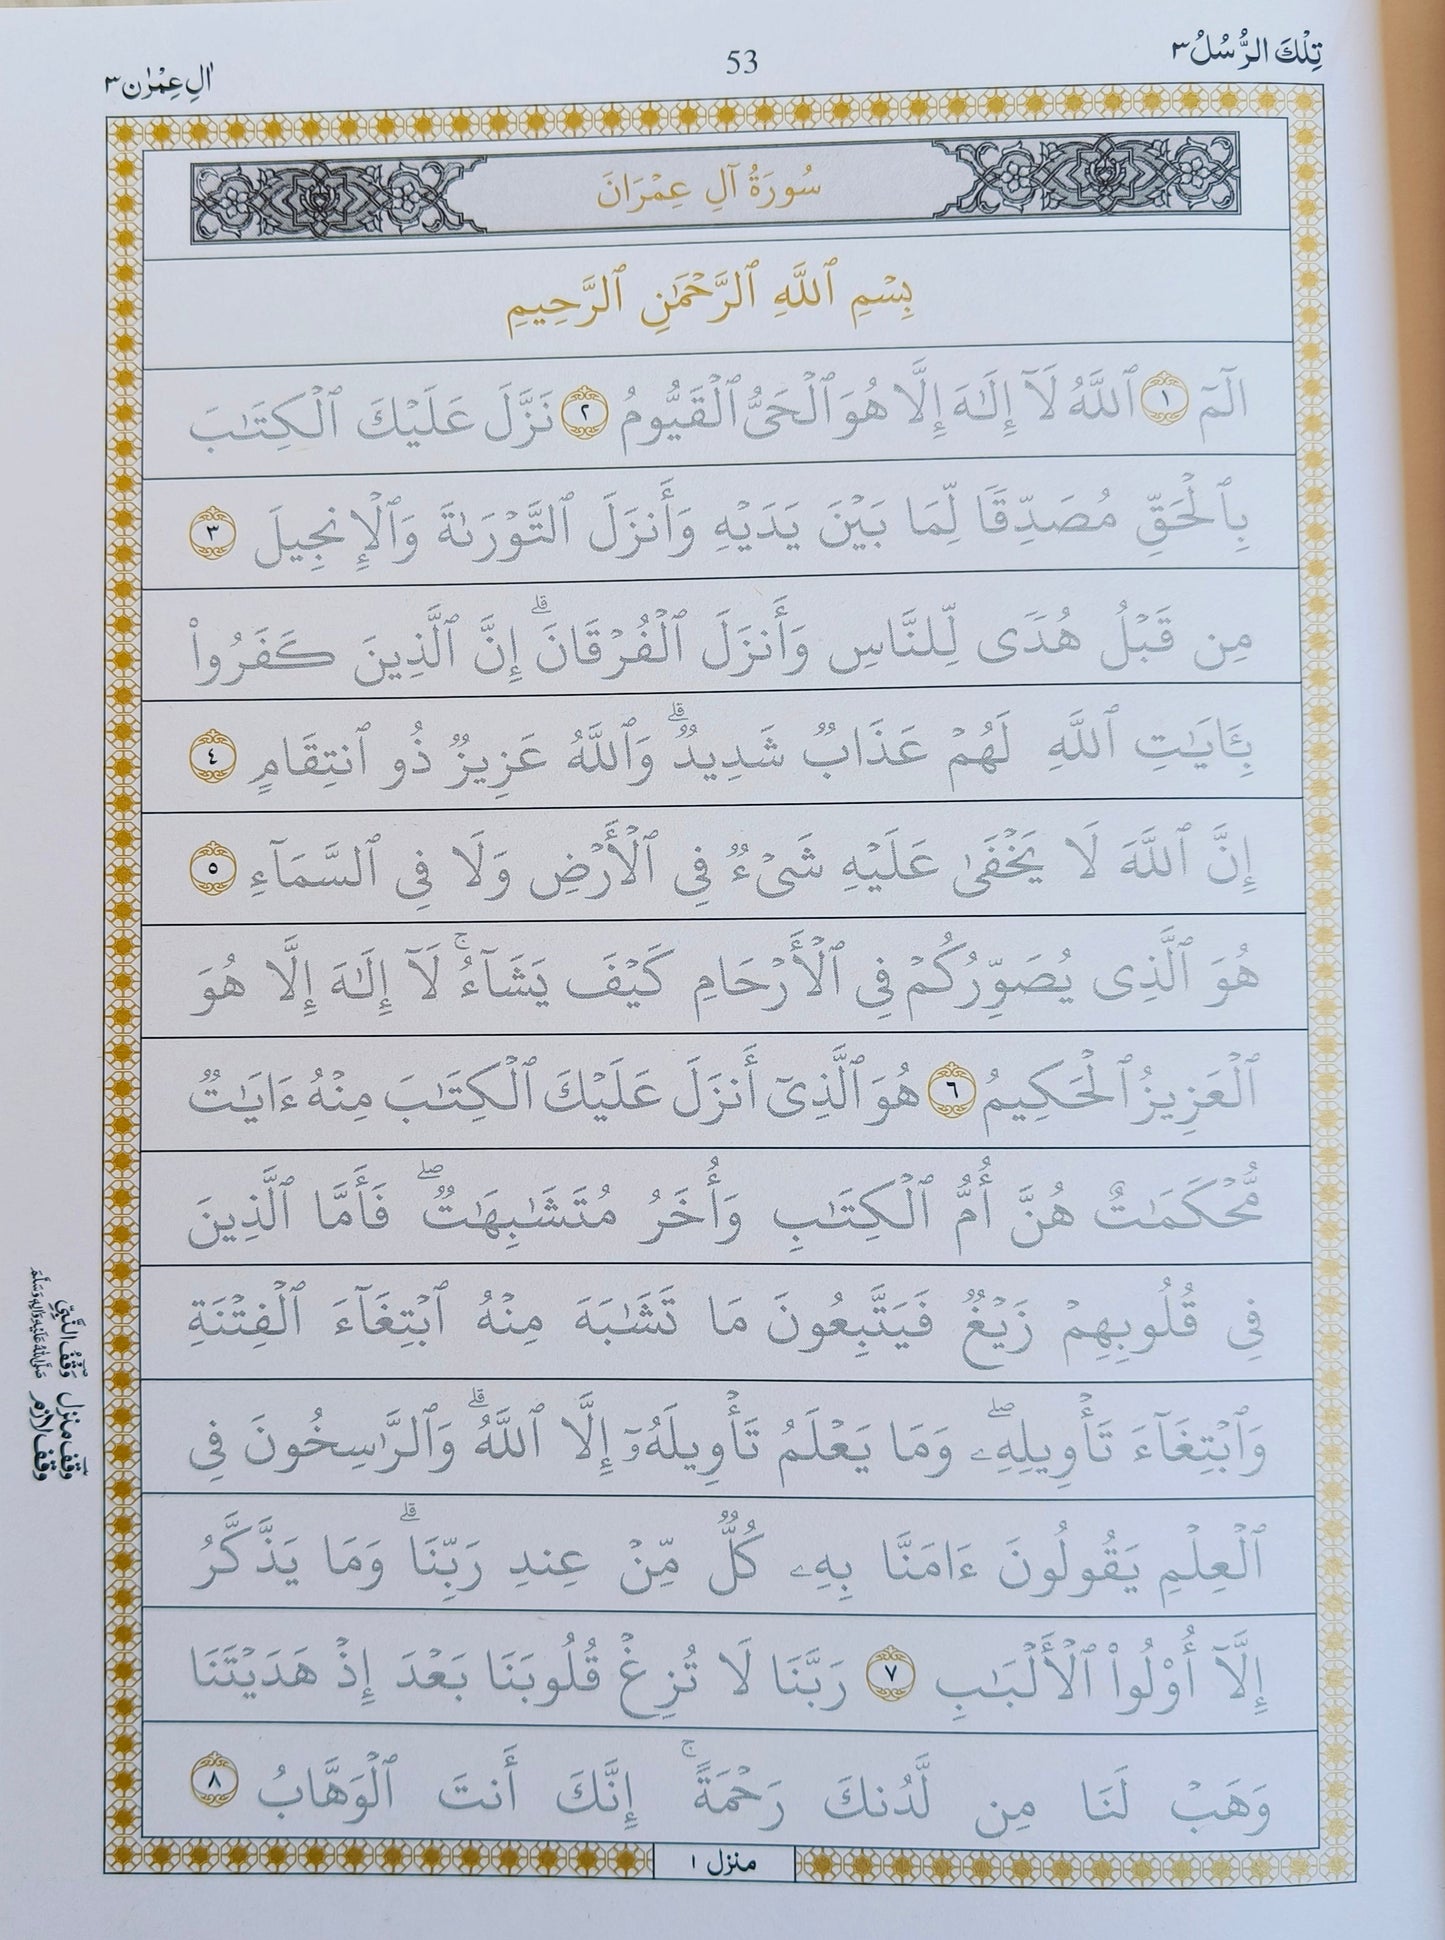 تِلْكَ الرُّسُلُ ٣
53
اٰلِ عِمْرٰن ٣
سُورَةُ آلِ عِمْرَانَ
بِسْمِ ٱللَّهِ ٱلرَّحْمَٰنِ ٱلرَّحِيمِ
الٓمٓ ١ ٱللَّهُ لَآ إِلَٰهَ إِلَّا هُوَ ٱلْحَىُّ ٱلْقَيُّومُ ٢ نَزَّلَ عَلَيْكَ ٱلْكِتَٰبَ
بِٱلْحَقِّ مُصَدِّقًا لِّمَا بَيْنَ يَدَيْهِ وَأَنزَلَ ٱلتَّوْرَىٰةَ وَٱلْإِنجِيلَ ٣
مِن قَبْلُ هُدًى لِّلنَّاسِ وَأَنزَلَ ٱلْفُرْقَانَ ۗ إِنَّ ٱلَّذِينَ كَفَرُوا۟
بِـَٔايَٰتِ ٱللَّهِ لَهُمْ عَذَابٌ شَدِيدٌ ۗ وَٱللَّهُ عَزِيزٌ ذُو ٱنتِقَامٍ ٤
إِنَّ ٱللَّهَ لَا يَخْفَىٰ عَلَيْهِ شَىْءٌ فِى ٱلْأَرْضِ وَلَا فِى ٱلسَّمَآءِ ٥
هُوَ ٱلَّذِى يُصَوِّرُكُمْ فِى ٱلْأَرْحَامِ كَيْفَ يَشَآءُ ۚ لَآ إِلَٰهَ إِلَّا هُوَ
ٱلْعَزِيزُ ٱلْحَكِيمُ ٦ هُوَ ٱلَّذِىٓ أَنزَلَ عَلَيْكَ ٱلْكِتَٰبَ مِنْهُ ءَايَٰتٌ
مُّحْكَمَٰتٌ هُنَّ أُمُّ ٱلْكِتَٰبِ وَأُخَرُ مُتَشَٰبِهَٰتٌ ۖ فَأَمَّا ٱلَّذِينَ
فِى قُلُوبِهِمْ زَيْغٌ فَيَتَّبِعُونَ مَا تَشَٰبَهَ مِنْهُ ٱبْتِغَآءَ ٱلْفِتْنَةِ
وَٱبْتِغَآءَ تَأْوِيلِهِۦ ۖ وَمَا يَعْلَمُ تَأْوِيلَهُۥٓ إِلَّا ٱللَّهُ ۗ وَٱلرَّٰسِخُونَ فِى
ٱلْعِلْمِ يَقُولُونَ ءَامَنَّا بِهِۦ كُلٌّ مِّنْ عِندِ رَبِّنَا ۗ وَمَا يَذَّكَّرُ
إِلَّآ أُو۟لُوا۟ ٱلْأَلْبَٰبِ ٧ رَبَّنَا لَا تُزِغْ قُلُوبَنَا بَعْدَ إِذْ هَدَيْتَنَا
وَهَبْ لَنَا مِن لَّدُنكَ رَحْمَةً ۚ إِنَّكَ أَنتَ ٱلْوَهَّابُ ٨
منزل ١
وقف لازم
وقف منزل
وَقْفُ النَّبِيِّ
صَلَّى اللّٰهُ عَلَيْهِ وَاٰلِهٖ وَسَلَّمَ